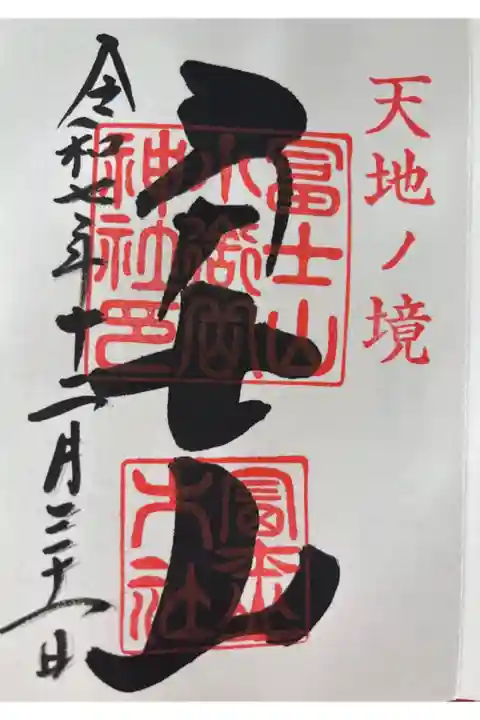 天地ノ境
冨士山
冨士山
小御嶽
神社印
大社
令和七年十二月三十一日